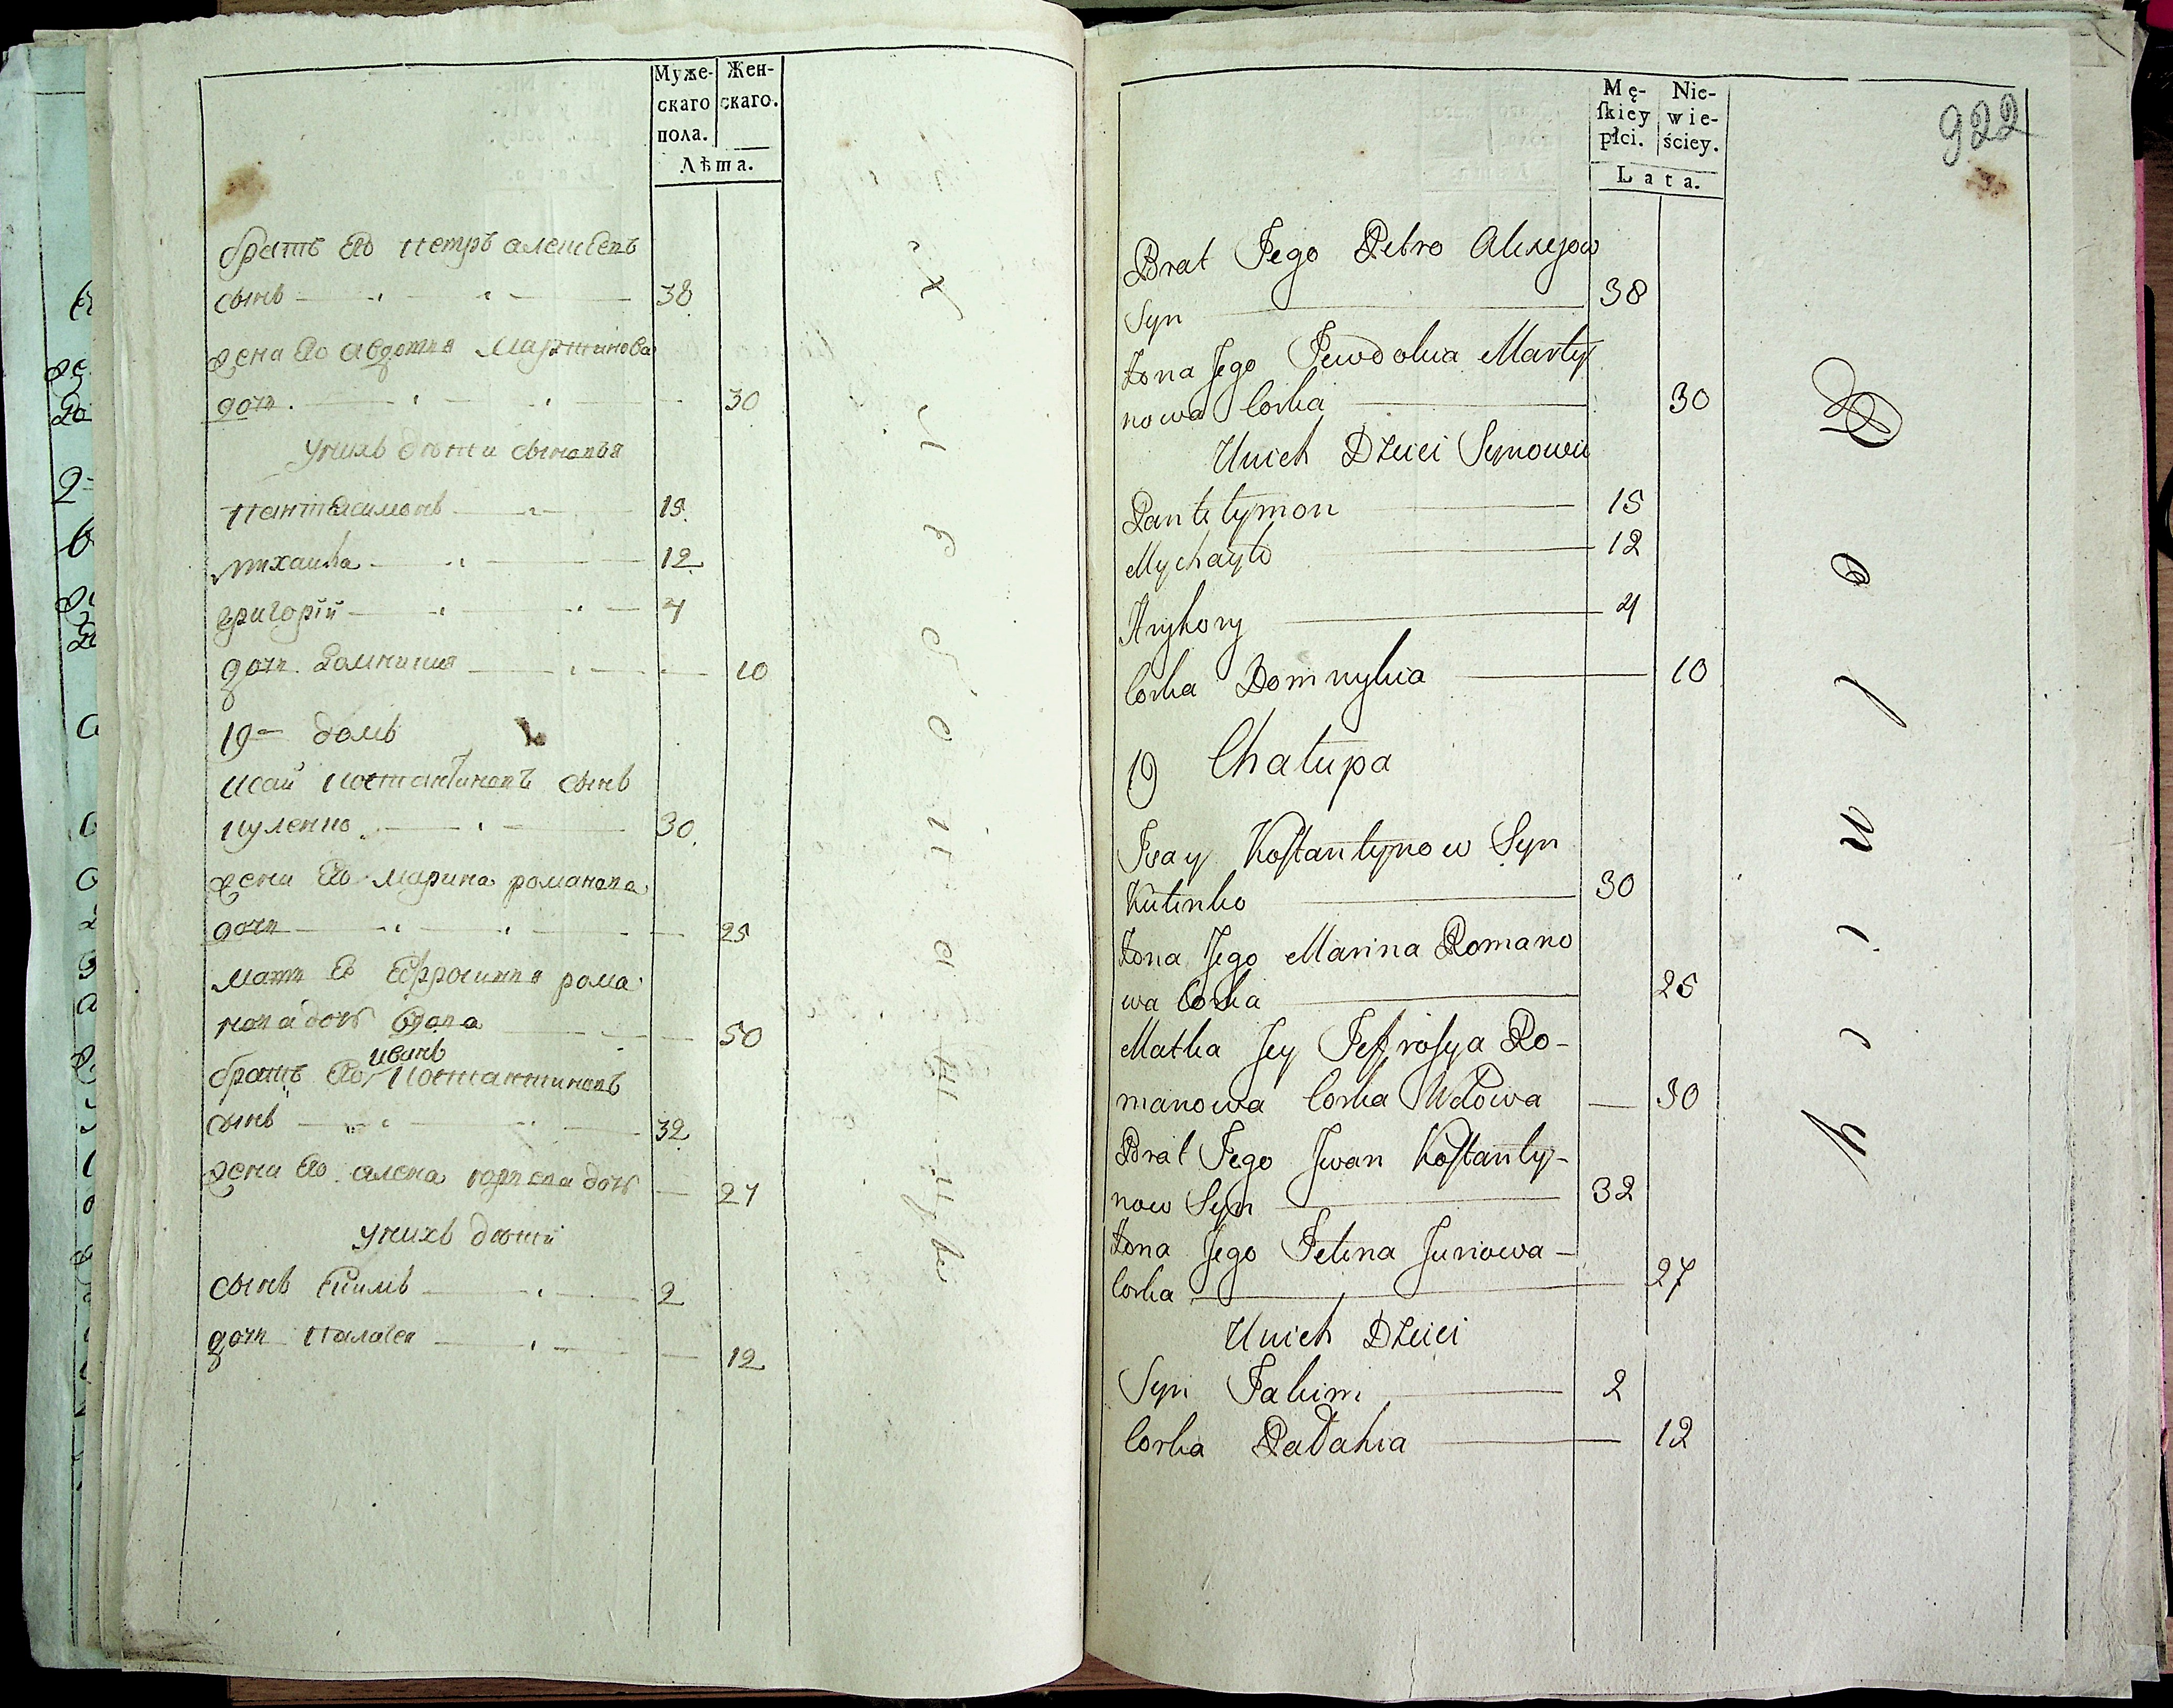 Муже-
скаго
пола.
Жен-
скаго.
Лѣта.
братъ его петръ алексѣевъ
сынъ 38
жена его авдотия Мартинова
дочь 30
у нихъ дѣти сыновья
пантелимонъ 15
михаила 12
григорій 4
дочь домникия 10
19 домъ
исай костантиновъ сынъ
куленко 30
жена его марина романова
дочь 25
мать его ефросиния рома
нова дочь вдова 50
иванъ
братъ его костантиновъ
сынъ 32
жена его алена дочь 27
у нихъ дѣтей
сынъ екимъ 2
дочь палагея 12
Mę-
ſkiey
płci.
Nie-
wie-
ściey.
Lata.
922
Brat Jego Petro Alexejow
Syn 38
Żona Jego Jewdokia Marty
nowa Corka 30
U nich Dzieci Synowie
Pantelymon 15
Mychayło 12
Hryhory 4
Corka Domnykia 10
19 Chałupa
Isay Koſtantynow Syn
Kulenko 30
Żona Jego Marina Romano
wa Corka 25
Matka Jey Jeffroſya Ro-
manowa Corka Wdowa 50
Brat Jego Iwan Koſtanty-
now Syn 32
Żona Jego Jelena Juriowa
Corka 27
U nich Dzieci
Syn Jakim 2
Corka Pałahia 12